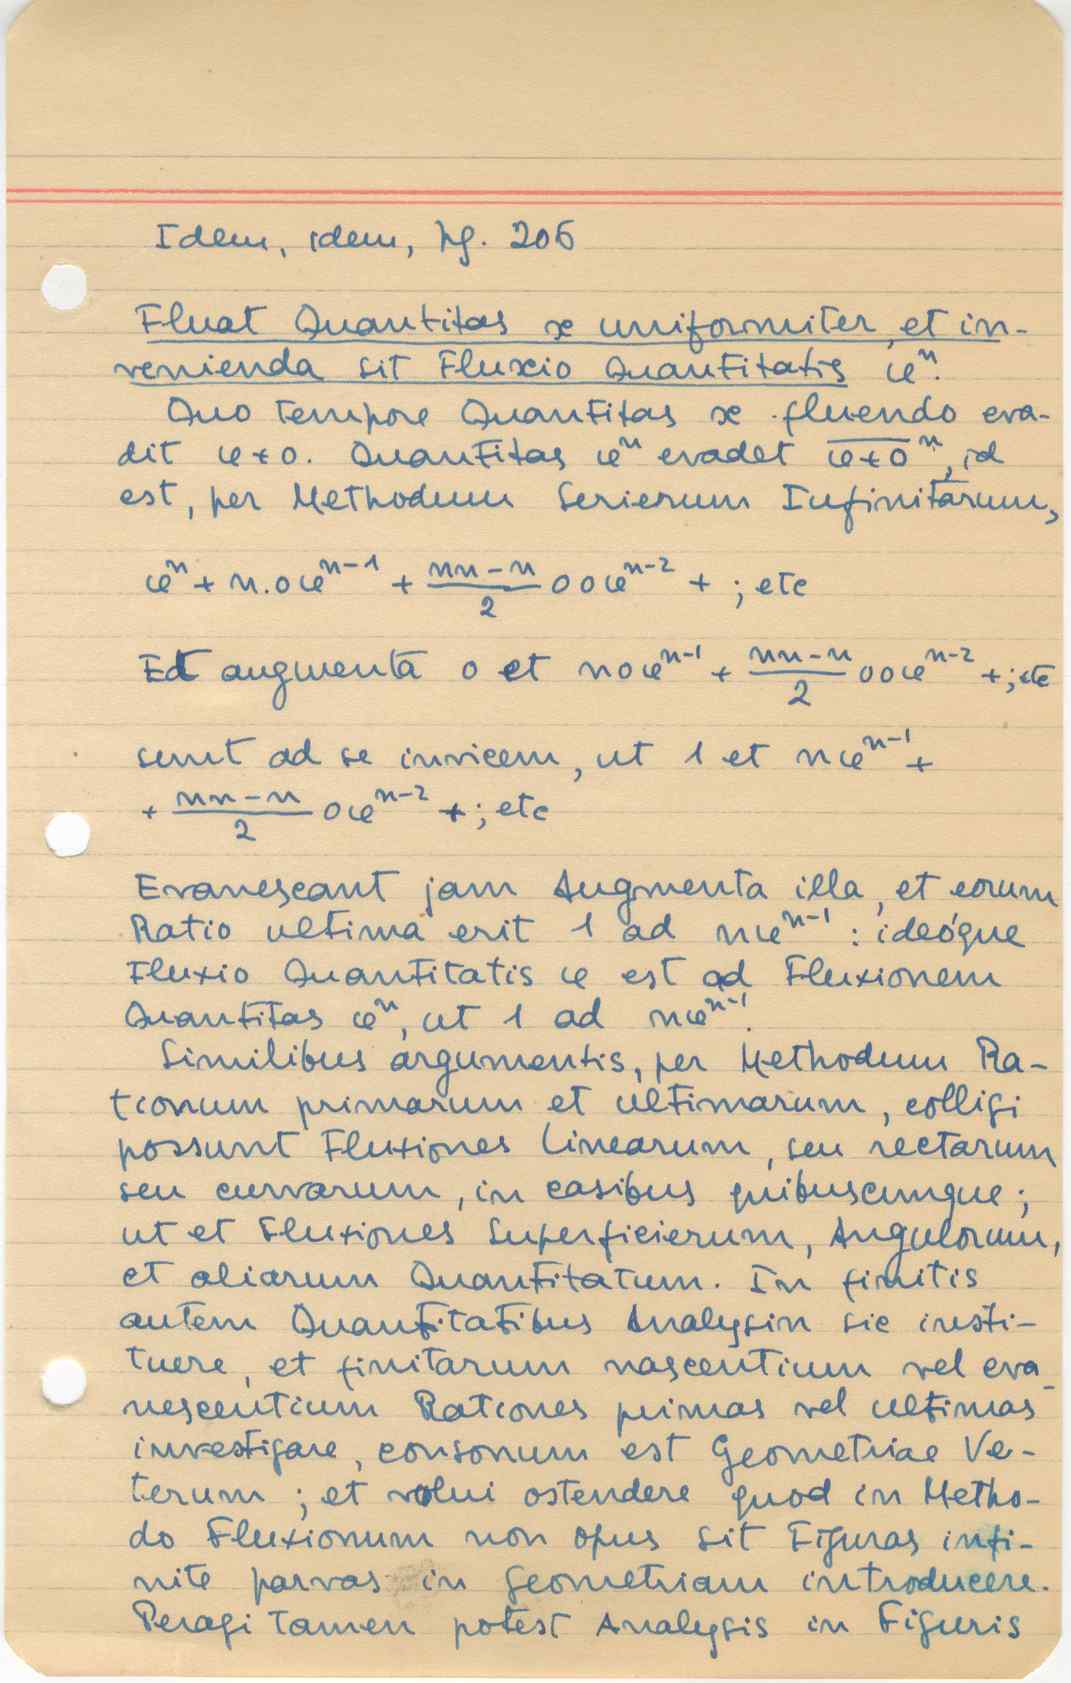 Idem, idem, pg. 206
Fluat Quantitas x uniformiter, et in-
venienda sit Fluxio Quantitatis xⁿ.
Quo tempore Quantitas x fluendo eva-
dit x+o. Quantitas xⁿ evadet x̅+̅o̅ⁿ, id
est, per Methodum Serierum Infinitarum,
xⁿ + n.oxⁿ⁻¹ + (nn-n)/2 ooxⁿ⁻² + ; etc
Et augmenta o et noxⁿ⁻¹ + (nn-n)/2 ooxⁿ⁻² +; etc
sunt ad se invicem, ut 1 et nxⁿ⁻¹ +
+ (nn-n)/2 oxⁿ⁻² +; etc
Evanescant jam Augmenta illa, et eorum
Ratio ultima erit 1 ad nxⁿ⁻¹ : ideóque
Fluxio Quantitatis x est ad Fluxionem
Quantitas xⁿ, ut 1 ad nxⁿ⁻¹.
Similibus argumentis, per Methodum Ra-
tionum primarum et ultimarum, colligi
possunt Fluxiones Linearum, seu rectarum
seu curvarum, in casibus quibuscunque;
ut et Fluxiones Superficierum, Angulorum,
et aliarum Quantitatum. In finitis
autem Quantitatibus Analysin sic insti-
tuere, et finitarum nascentium vel eva-
nescentium Rationes primas vel ultimas
investigare, consonum est Geometriae Ve-
terum ; et volui ostendere quod in Metho-
do Fluxionum non opus sit Figuras infi-
nite parvas in Geometriam introducere.
Peragi tamen potest Analysis in Figuris